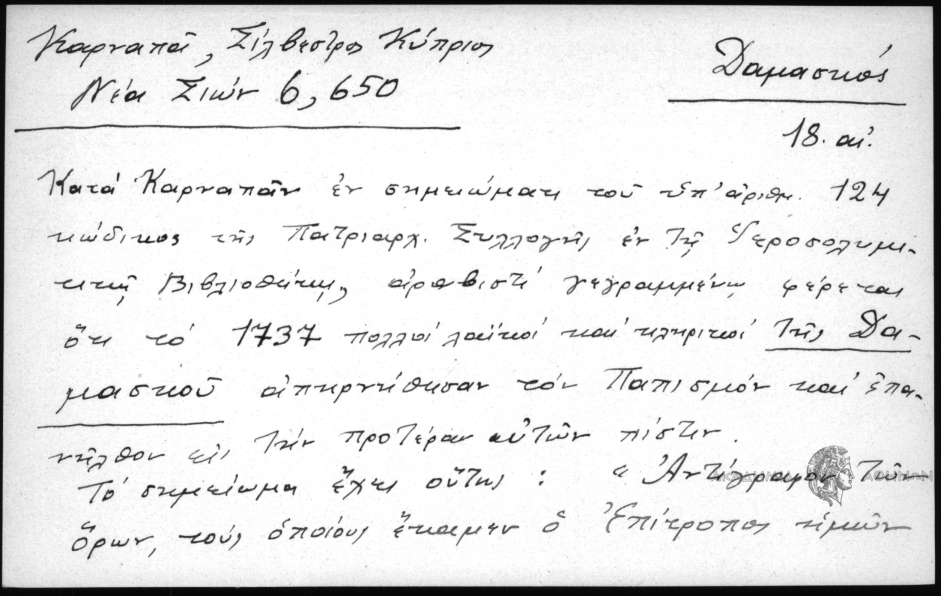 Καρναπᾶ, Σίλβεστρος Κύπριος
Νέα Σιών 6, 650
Δαμασκός
18. αἰ.
Κατά Καρναπᾶν ἐν σημειώματι τοῦ ὑπ' ἀριθμ. 124
κώδικος τῆς Πατριαρχ. Συλλογῆς ἐν τῇ Ἱεροσολυμι-
τικῇ Βιβλιοθήκῃ, ἀραβιστί γεγραμμένῳ φέρεται
ὅτι τό 1737 πολλοί λαϊκοί καί κληρικοί τῆς Δα-
μασκοῦ ἀπηρνήθησαν τόν Παπισμόν καί ἐπα-
νῆλθον εἰς τήν προτέραν αὐτῶν πίστιν.
Τό σημείωμα ἔχει οὕτως : « Ἀντίγραφον τῶν
ὅρων, τούς ὁποίους ἔκαμεν ὁ Ἐπίτροπος ἡμῶν
ΑΚΑΔΗΜΙΑ ΑΘΗΝΩΝ